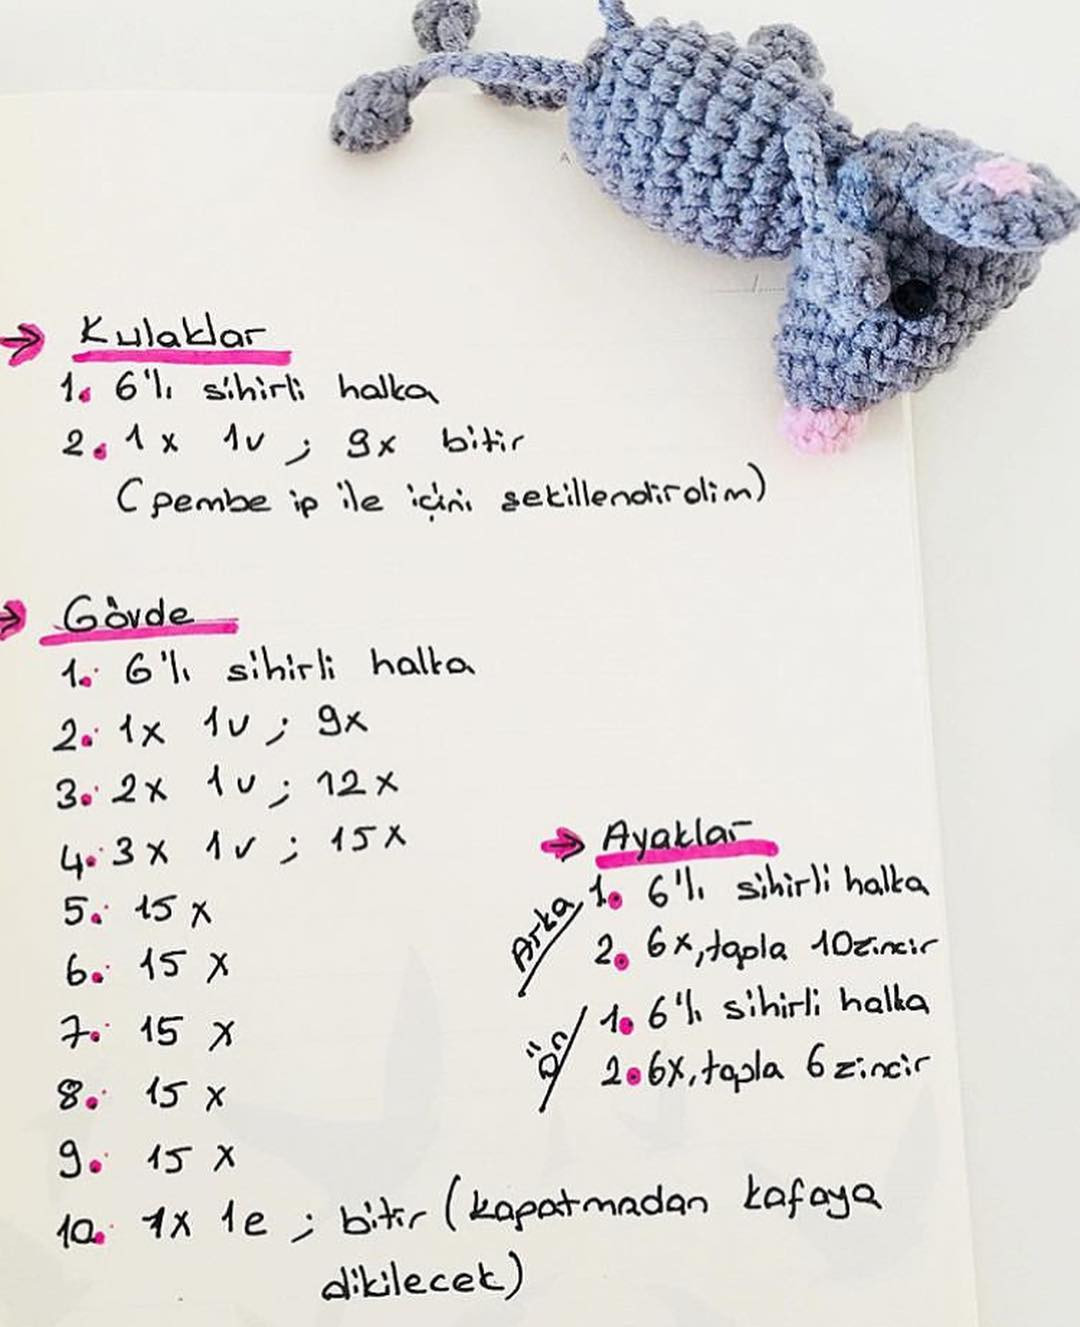 Kulaklar
1. 6'lı sihirli halka
2. 1x 1v ; 9x bitir
(pembe ip ile içini şekillendirdim)
Gövde
1. 6'lı sihirli halka
2. 1x 1v ; 9x
3. 2x 1v ; 12x
4. 3x 1v ; 15x
5. 15x
6. 15x
7. 15x
8. 15x
9. 15x
10. 1x 1e ; bitir (kapatmadan kafaya
dikilecek)
Ayaklar
Arka
1. 6'lı sihirli halka
2. 6x, topla 10zincir
Ön
1. 6'lı sihirli halka
2. 6x, topla 6 zincir